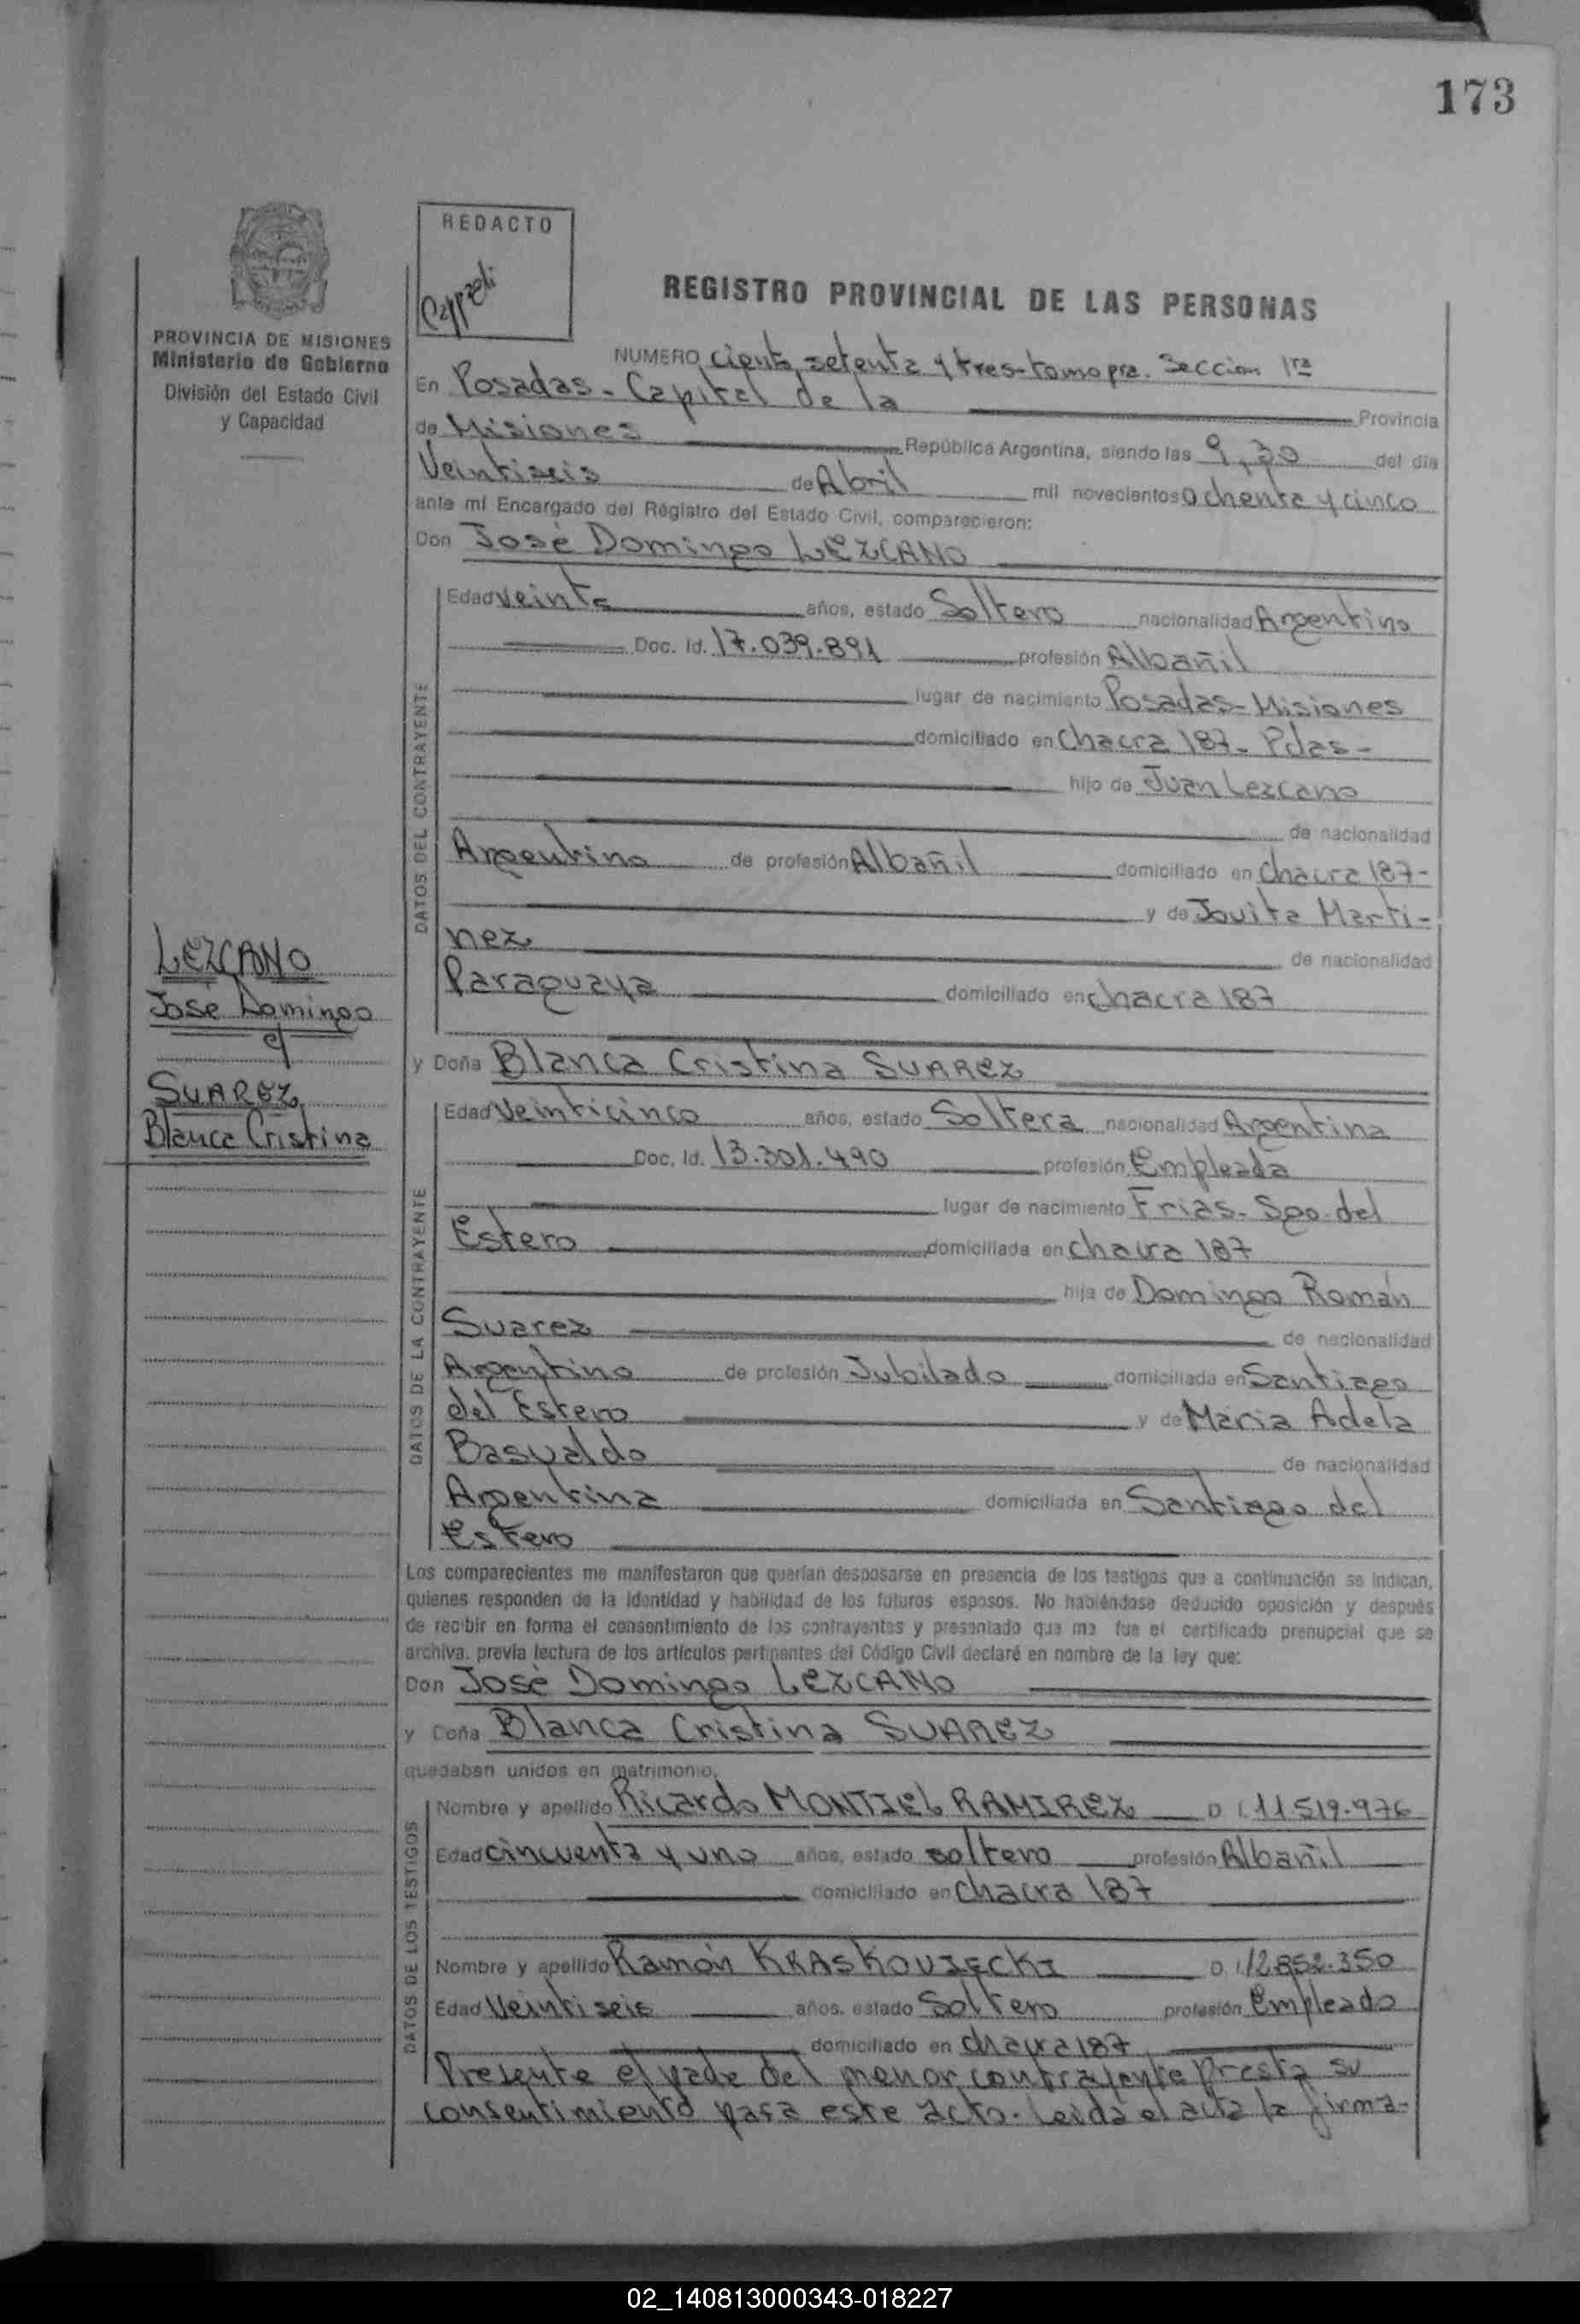 173
REDACTO
REGISTRO PROVINCIAL DE LAS PERSONAS
PROVINCIA DE MISIONES
Ministerio de Gobierno
División del Estado Civil
y Capacidad
NUMERO ciento setenta y tres-tomo pra. Seccion 1ra
En Posadas-Capital de la Provincia
de Misiones República Argentina, siendo las 9,30 del día
Veintiseis de Abril mil novecientos Ochenta y cinco
ante mí Encargado del Registro del Estado Civil, comparecieron:
Don José Domingo LEZCANO
Edad veinte años, estado Soltero nacionalidad Argentino
Doc. Id. 17.039.891 profesión Albañil
lugar de nacimiento Posadas-Misiones
domiciliado en Chacra 187- Pdas-
hijo de Juan Lezcano
de nacionalidad
Argentino de profesión Albañil domiciliado en Chacra 187-
y de Jovita Marti-
nez de nacionalidad
Paraguaya domiciliado en chacra 187
DATOS DEL CONTRAYENTE
LEZCANO
José Domingo
c/
SUAREZ
Blanca Cristina
y Doña Blanca Cristina SUAREZ
Edad Veinticinco años, estado Soltera nacionalidad Argentina
Doc. Id. 13.301.490 profesión Empleada
lugar de nacimiento Frias- Sgo. del
Estero domiciliada en chacra 187
hija de Domingo Román
Suarez de nacionalidad
Argentino de profesión Jubilado domiciliada en Santiago
del Estero y de María Adela
Basualdo de nacionalidad
Argentina domiciliada en Santiago del
Estero
DATOS DE LA CONTRAYENTE
Los comparecientes me manifestaron que querían desposarse en presencia de los testigos que a continuación se indican,
quienes responden de la identidad y habilidad de los futuros esposos. No habiéndose deducido oposición y después
de recibir en forma el consentimiento de los contrayentes y presentado que me fue el certificado prenupcial que se
archiva. previa lectura de los artículos pertinentes del Código Civil declaré en nombre de la ley que:
Don José Domingo LEZCANO
y Doña Blanca Cristina SUAREZ
quedaban unidos en matrimonio.
Nombre y apellido Ricardo MONTIEL RAMIREZ D.I. 11.519.976
Edad cincuenta y uno años, estado soltero profesión Albañil
domiciliado en chacra 187
Nombre y apellido Ramón KRASKOVIECKI D.I. 12.852.350
Edad Veintiseis años, estado Soltero profesión Empleado
domiciliado en chacra 187
DATOS DE LOS TESTIGOS
Presente el padre del menor contrayente presta su
consentimiento para este acto. Leida el acta la firma-
02_140813000343-018227